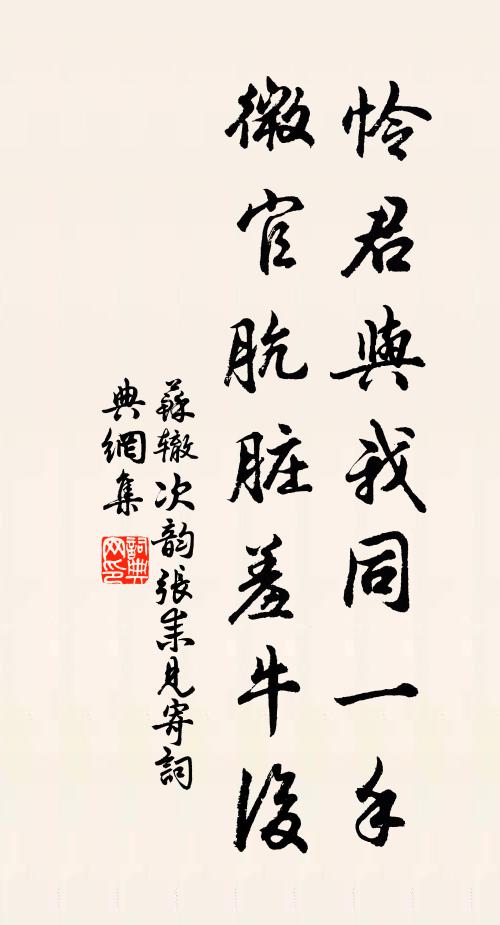 怜君與我同一手
微官肮脏羞牛後
蘇辙次韵張耒見寄詞
典網集
詞典
网印